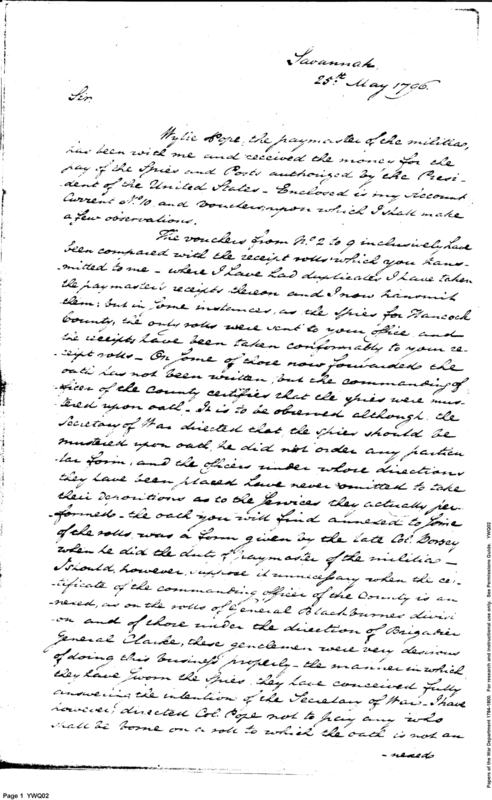 Savannah
25th May 1796.
Sir
Wylie Pope, the paymaster of the militias,
has been with me and received the money for the
pay of the Spies and Posts authorized by the Presi-
dent of the United States - Enclosed is my Account
Current No. 10. and vouchers, upon which I shall make
a few observations.
The vouchers from No. 2 to 9 inclusively, have
been compared with the receipt rolls which you trans-
mitted to me - where I have had duplicates I have taken
the paymaster's receipts thereon and I now transmit
them; but in some instances, as the Spies for Hancock
County, the only rolls were sent to your office and
the receipts have been taken conformably to your re-
ceipt rolls - On some of those now forwarded the
oath has not been written, but the commanding of-
ficer of the County certifies that the spies were mus-
tered upon oath - It is to be observed although the
Secretary of War directed that the spies should be
mustered upon oath, he did not order any particu-
lar form, and the officers under whose directions
they have been placed have never omitted to take
their depositions as to the services they actually per-
formed - the oath you will find annexed to some
of the rolls, was a form given by the late Col. Dorsey
when he did the duty of paymaster of the militia -
I should, however, suppose it unnecessary when the cer-
tificate of the commanding officer of the County is an
nexed, as on the rolls of General Blackburnes divisi
on and of those under the direction of Brigadier
General Clarke, these gentlemen were very desirous
of doing this business properly - the manner in which
they have sworn the Spies, they have conceived fully
answering the intention of the Secretary of War - I have
however, directed Col. Pope not to pay any who
shall be borne on a roll to which the oath is not an
- nexed
Page 1 YWQ02
Papers of the War Department 1784-1800. For research and instructional use only. See Permissions Guide. YWQ02